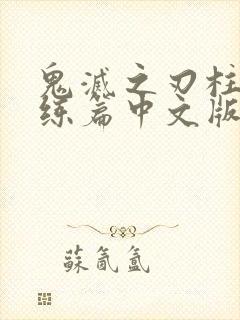 鬼滅之刃柱
练篇中文版
蘇氤氳